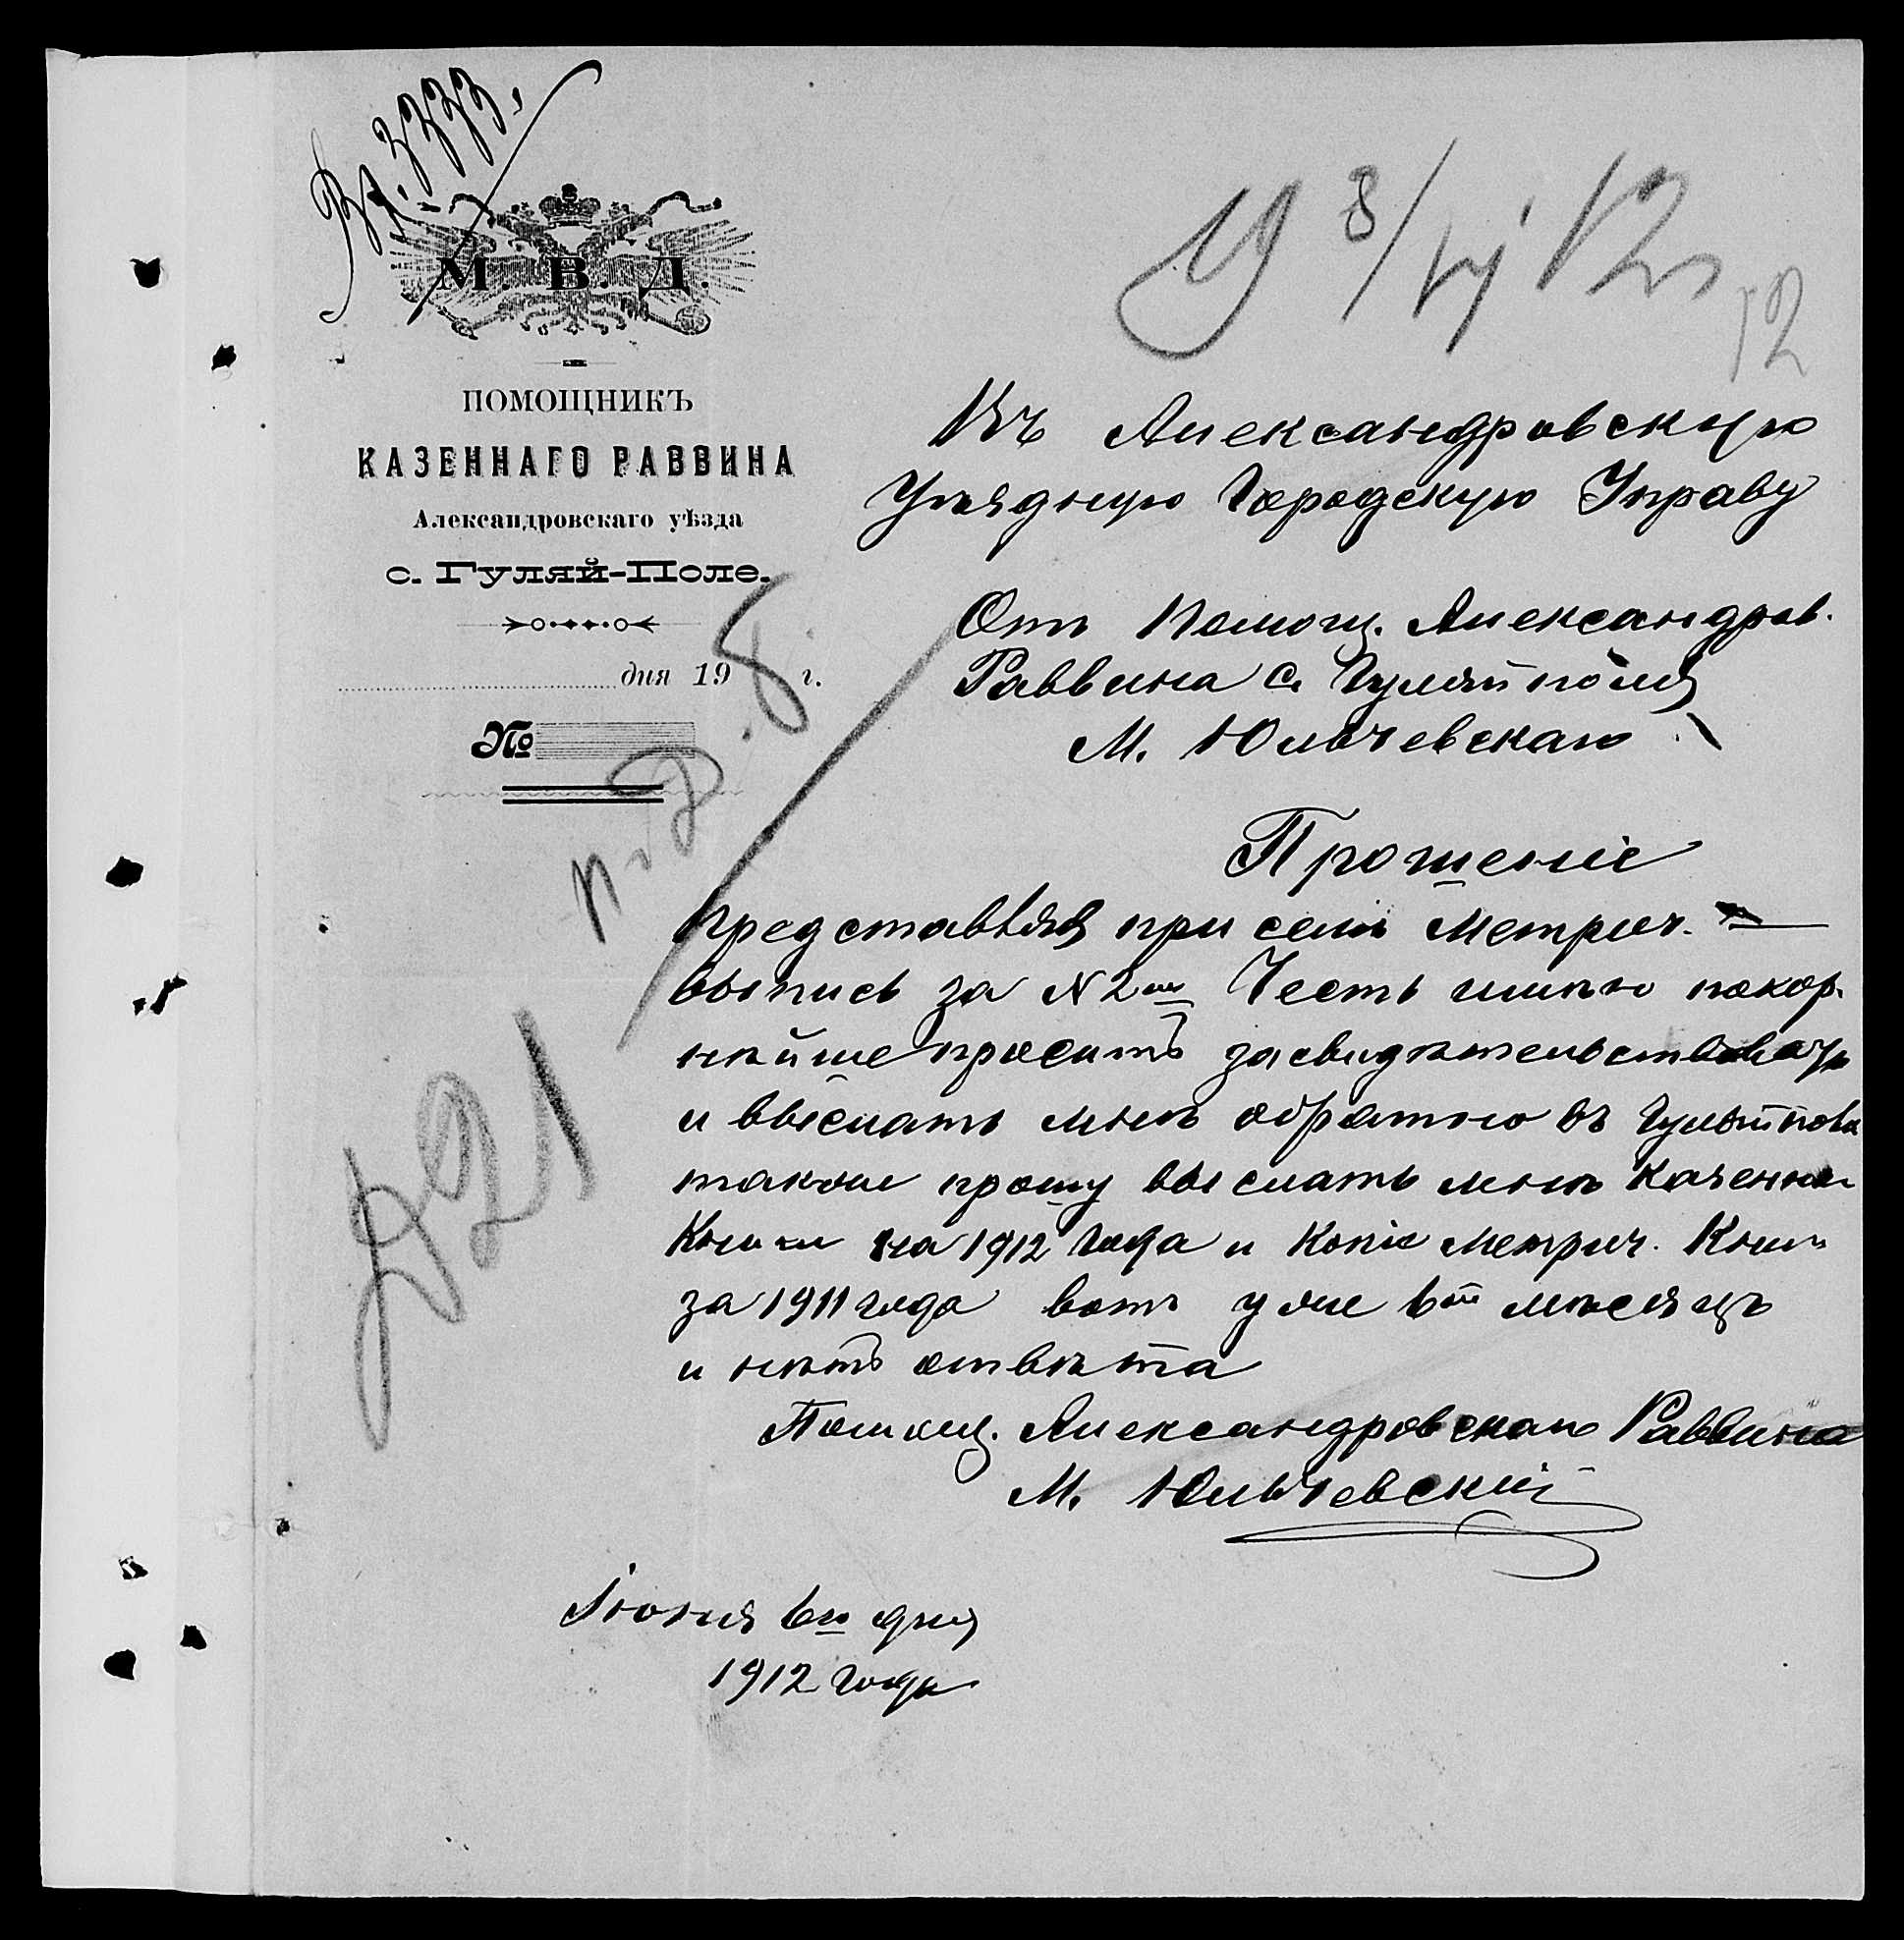 Вх. 3333.
М. В. Д.
ПОМОЩНИКЪ
КАЗЕННАГО РАВВИНА
Александровскаго уѣзда
с. Гуляй-Поле.
дня 19 г.
№
19 8/VI 12
12
Въ Александровскую
Уѣздную Городскую Управу
Отъ Помощ. Александров.
Раввина с. Гуляйполя
М. Юльчевскаго
Прошеніе
Представляя при семъ Метрич.
выпись за N 2мъ Честь имѣю покор.
нѣйше проситъ засвидѣтельствовать
и выслать мнѣ обратно въ Гуляйполе
также прошу выслать мнѣ Казенн.
Книги на 1912 года и Копіе Метрич. Книг
за 1911 года вотъ уже 6й мѣсяцъ
и нѣтъ отвѣта
Помощ. Александровскаго Раввина
М. Юльчевскій
Іюня 6го дня
1912 года